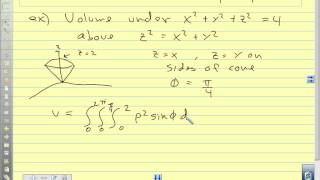 ex) Volume under x² + y² + z² = 4
above z² = x² + y²
z = x , z = y on
sides of cone
z
z = 2
ϕ = π/4
V = ∫₀^2π ∫₀^π/4 ∫₀^2 ρ² sin ϕ d